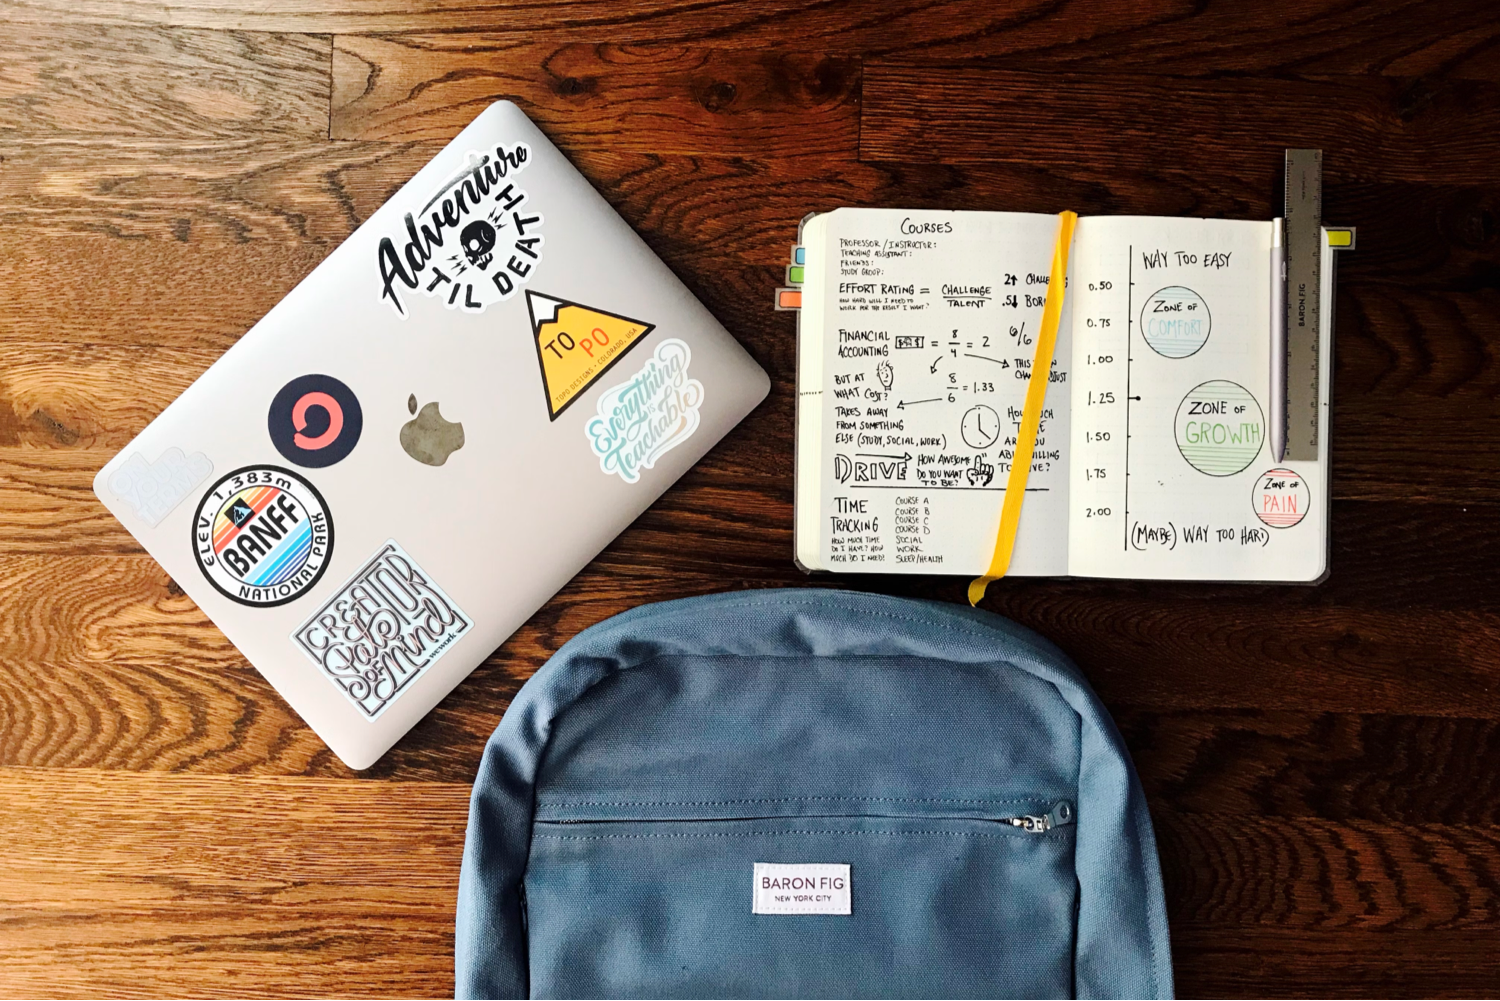 Adventure
TIL DEATH
TO PO
TOPO DESIGNS • COLORADO, USA
Everything
IS
Teachable
ELEV. 1,383m
BANFF
NATIONAL PARK
CREATOR
State
OF Mind
wework
COURSES
PROFESSOR/INSTRUCTOR:
TEACHING ASSISTANT:
FRIENDS:
STUDY GROUP:
EFFORT RATING = CHALLENGE
TALENT
HOW HARD WILL I NEED TO
WORK FOR THE RESULT I WANT?
2↑
.5↓
FINANCIAL
ACCOUNTING
= 8/4 = 2
6/6
THIS
8/6 = 1.33
BUT AT
WHAT COST?
TAKES AWAY
FROM SOMETHING
ELSE (STUDY, SOCIAL, WORK)
ARE YOU
DRIVE
HOW AWESOME
DO YOU WANT
TO BE?
TIME
TRACKING
HOW MUCH TIME
DO I HAVE? HOW
MUCH DO I NEED?
COURSE A
COURSE B
COURSE C
COURSE D
SOCIAL
WORK
SLEEP/HEALTH
WAY TOO EASY
0.50
0.75
1.00
1.25
1.50
1.75
2.00
ZONE OF
COMFORT
ZONE OF
GROWTH
ZONE OF
PAIN
(MAYBE) WAY TOO HARD
BARON FIG
BARON FIG
NEW YORK CITY